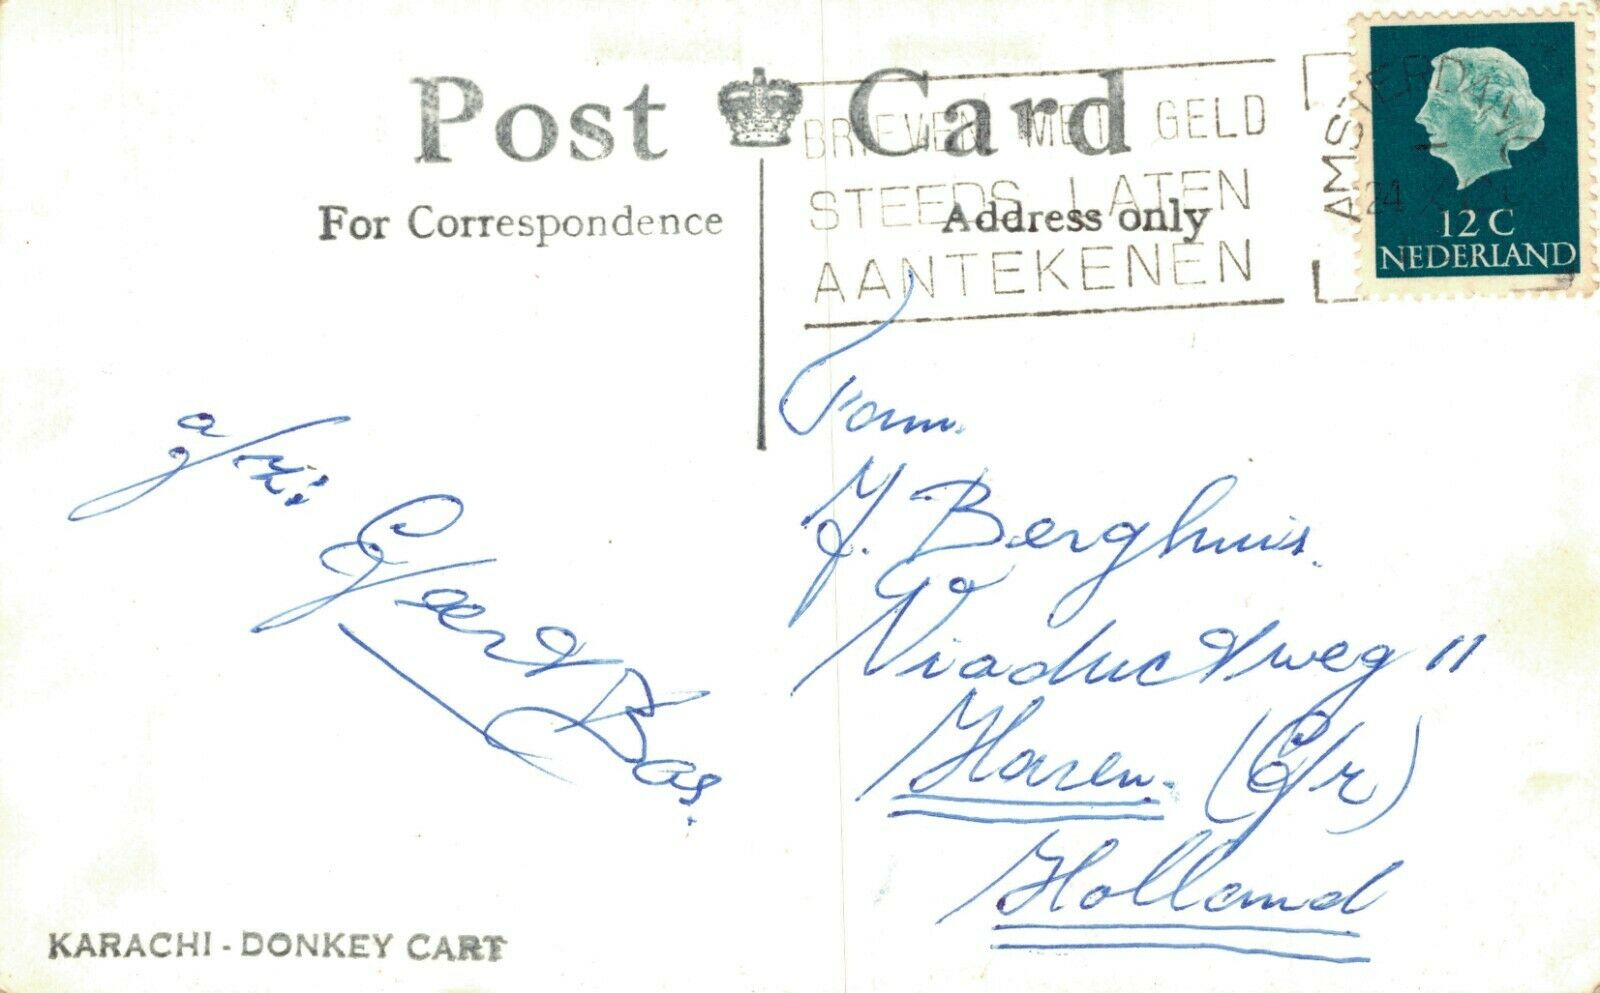 Post Card
For Correspondence
Address only
BRIEVEN MET GELD
STEEDS LATEN
AANTEKENEN
AMSTERDAM
24
12 C
NEDERLAND
Fam.
J. Berghuis.
Viaductweg 11
Haren. (Gr)
Holland
a/z:
Geert Bos.
KARACHI - DONKEY CART